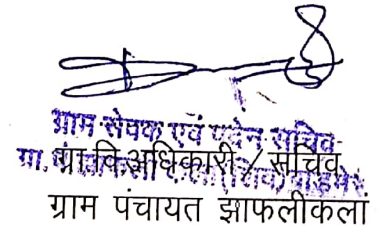 ग्राम सेवक एवं पदेन सचिव
ग्रा.वि.अधिकारी / सचिव
ग्राम पंचायत झाफलीकलां